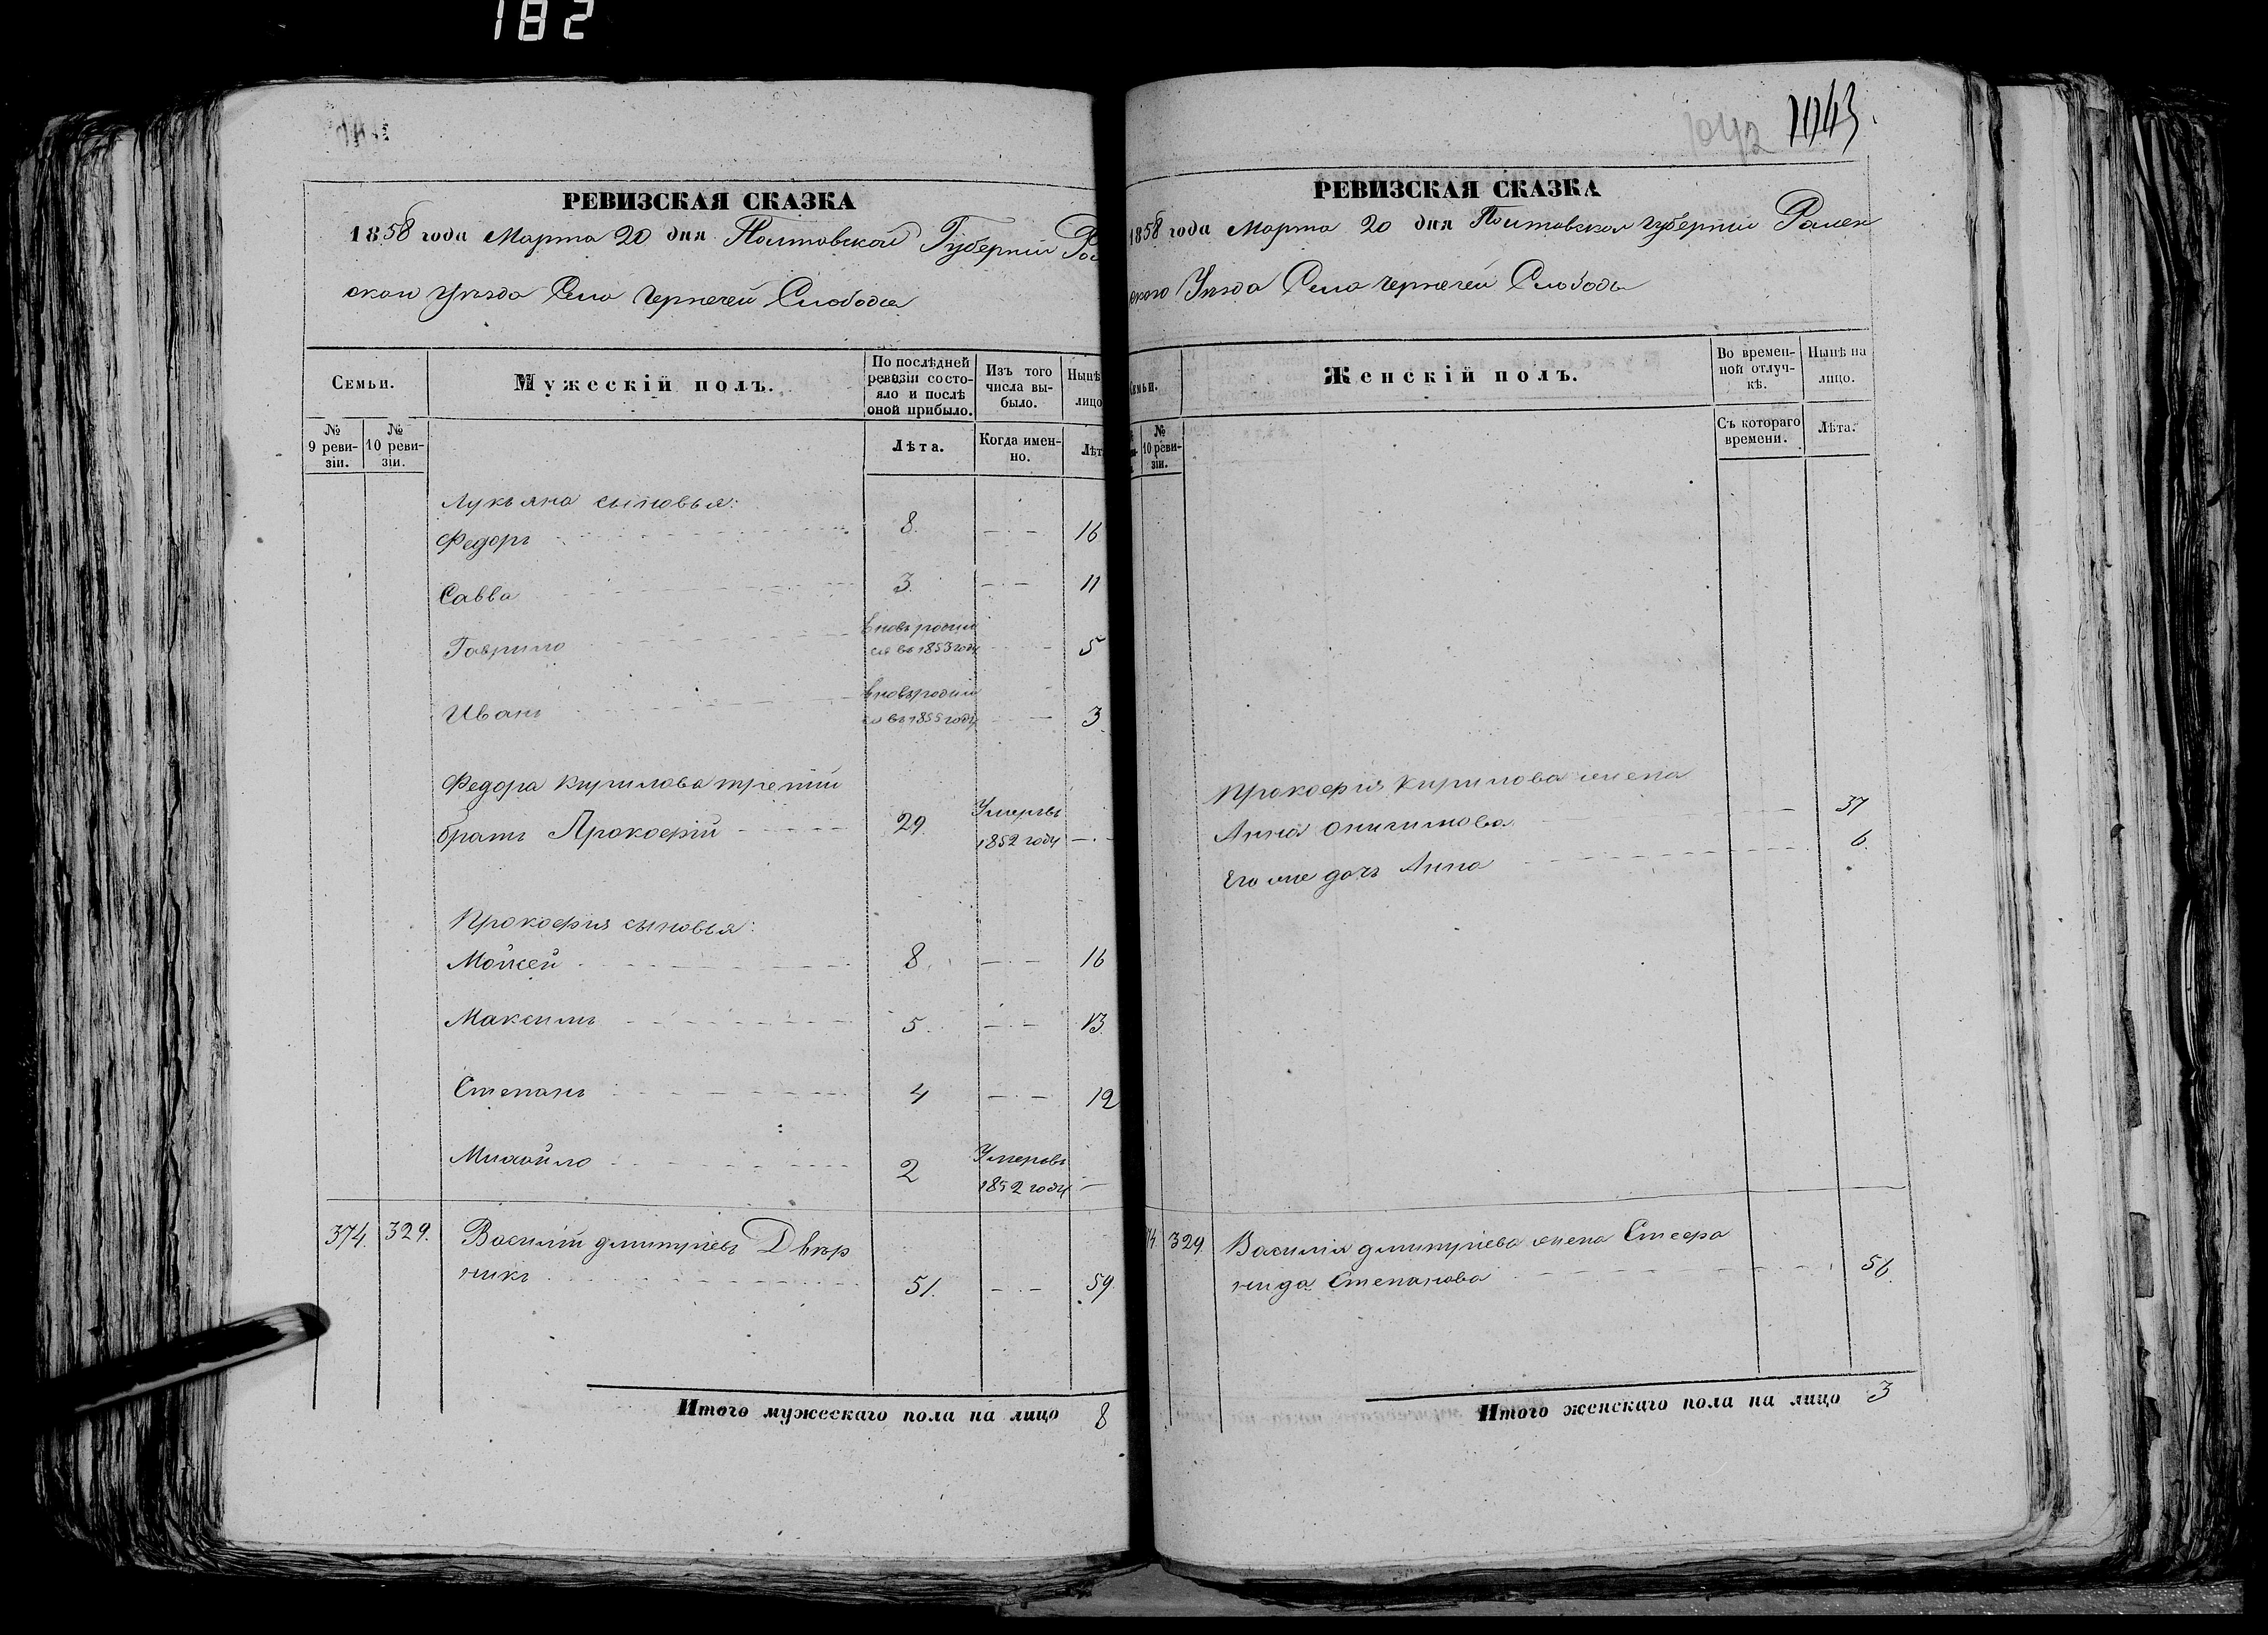 182
РЕВИЗСКАЯ СКАЗКА
1858 года Марта 20 дня Полтавской Губерніи
ского Уезда Села Чернечей Слободы
Семьи.
Мужескій полъ.
По послѣдней ревизіи состояло и послѣ оной прибыло.
Изъ того числа выбыло.
Нынѣ
лицо
№ 9 ревизіи.
№ 10 ревизіи.
Лѣта.
Когда именно.
Лѣт
Лукьяна сыновья:
Федоръ 8. 16
Савва 3. 11
Гаврило вновь родил
ся въ 1853 году 5
Иванъ вновь родил
ся въ 1855 году 3
Федора Кирилова третій
братъ Прокофій 29 Умеръ въ
1852 году
Прокофія сыновья:
Мойсей 8. 16
Максимъ 5. 13
Степанъ 4 12
Михайло 2 Умеръ въ
1852 году
374. 329. Василій Дмитріевъ Двѣр
никъ 51. 59.
Итого мужескаго пола на лицо 8
1042 1043
РЕВИЗСКАЯ СКАЗКА
1858 года Марта 20 дня Полтавской Губерніи Ромен
ского Уезда Села Чернечей Слободы
Семьи.
Женскій полъ.
Во временной отлучкѣ.
Нынѣ на лицо.
№ 10 ревизіи.
Съ котораго времени.
Лѣта.
Прокофія Кирилова жена
Анна Онисимова 37
Его же дочь Анна 6.
329. Василія Дмитріева жена Стефа
нида Степанова 56.
Итого женскаго пола на лицо 3